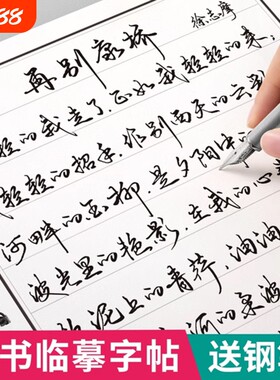 88
再别康桥
徐志摩
轻轻的我走了,正如我轻轻的来,
轻轻的招手,作别西天的云彩
河畔的金柳,是夕阳中
波光里的艳影,在我的心
泥上的青荇,油油
河的柔波
书临摹字帖
送钢